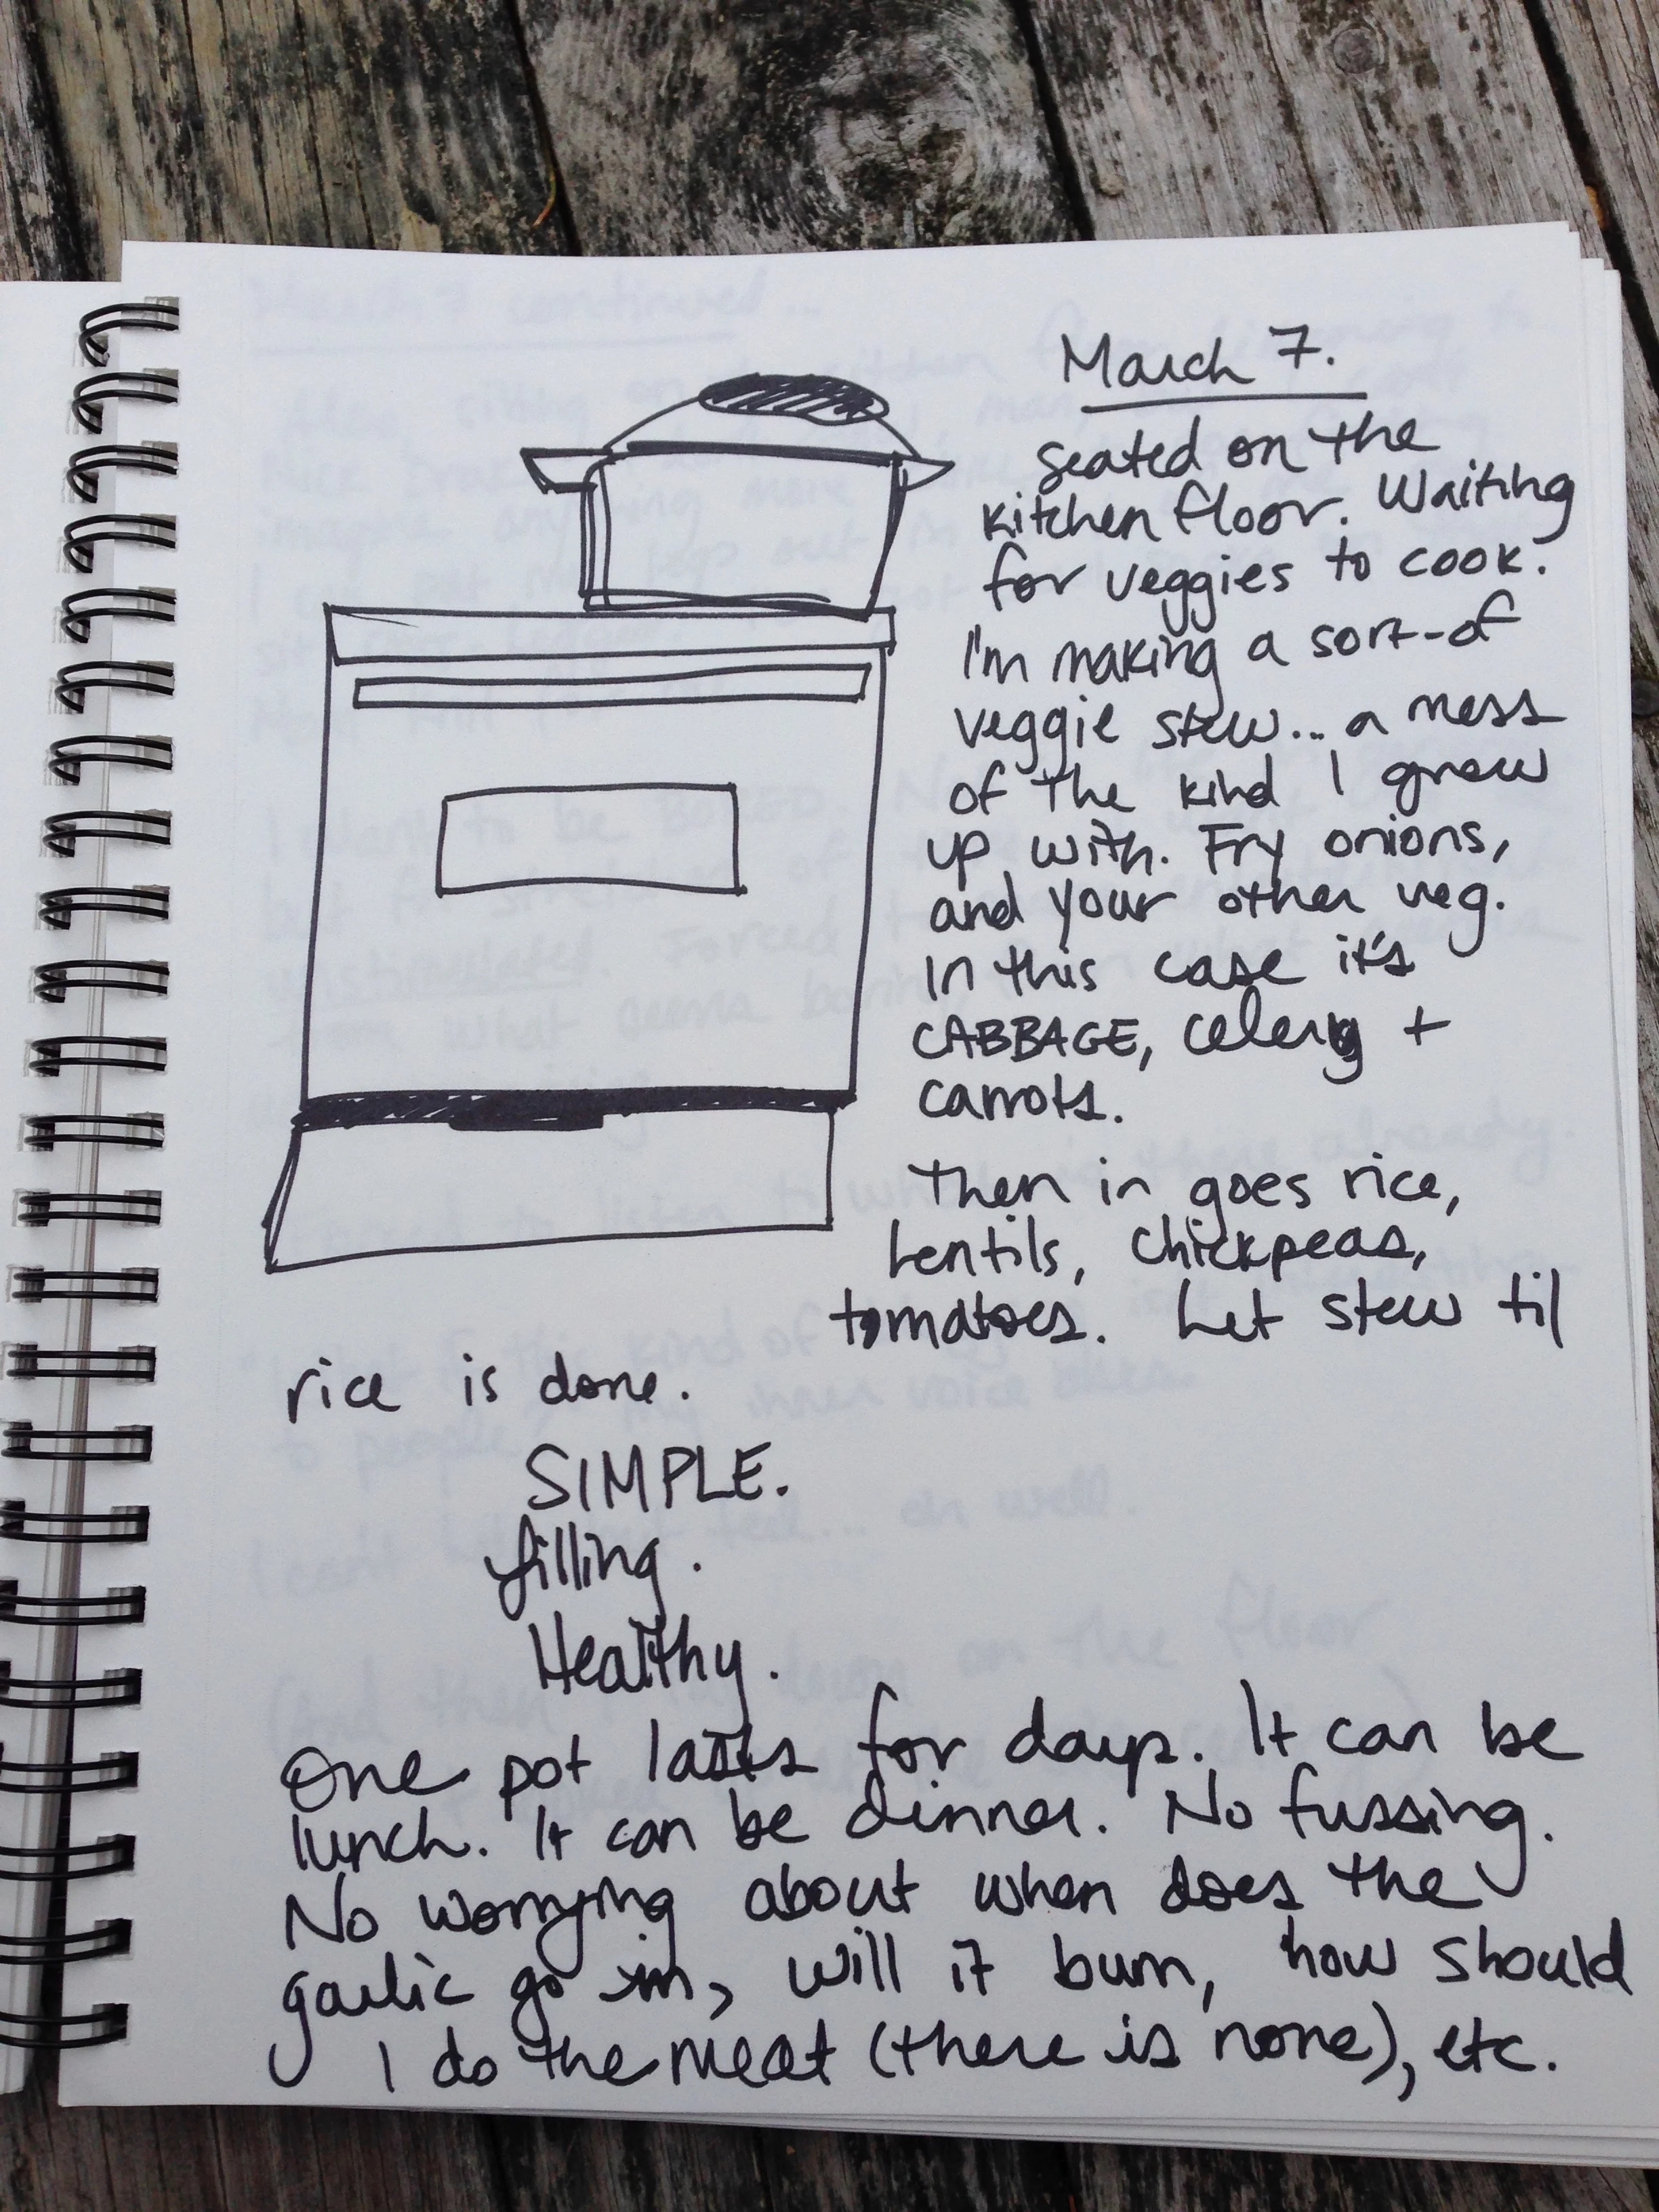 March 7.
seated on the
kitchen floor. Waiting
for veggies to cook.
I'm making a sort-of
veggie stew... a mess
of the kind I grew
up with. Fry onions,
and your other veg.
In this case it's
CABBAGE, celery +
carrots.
Then in goes rice,
lentils, chickpeas,
tomatoes. Let stew til
rice is done.
SIMPLE.
filling.
Healthy.
One pot lasts for days. It can be
lunch. It can be dinner. No fussing.
No worrying about when does the
garlic go in, will it burn, how should
I do the meat (there is none), etc.